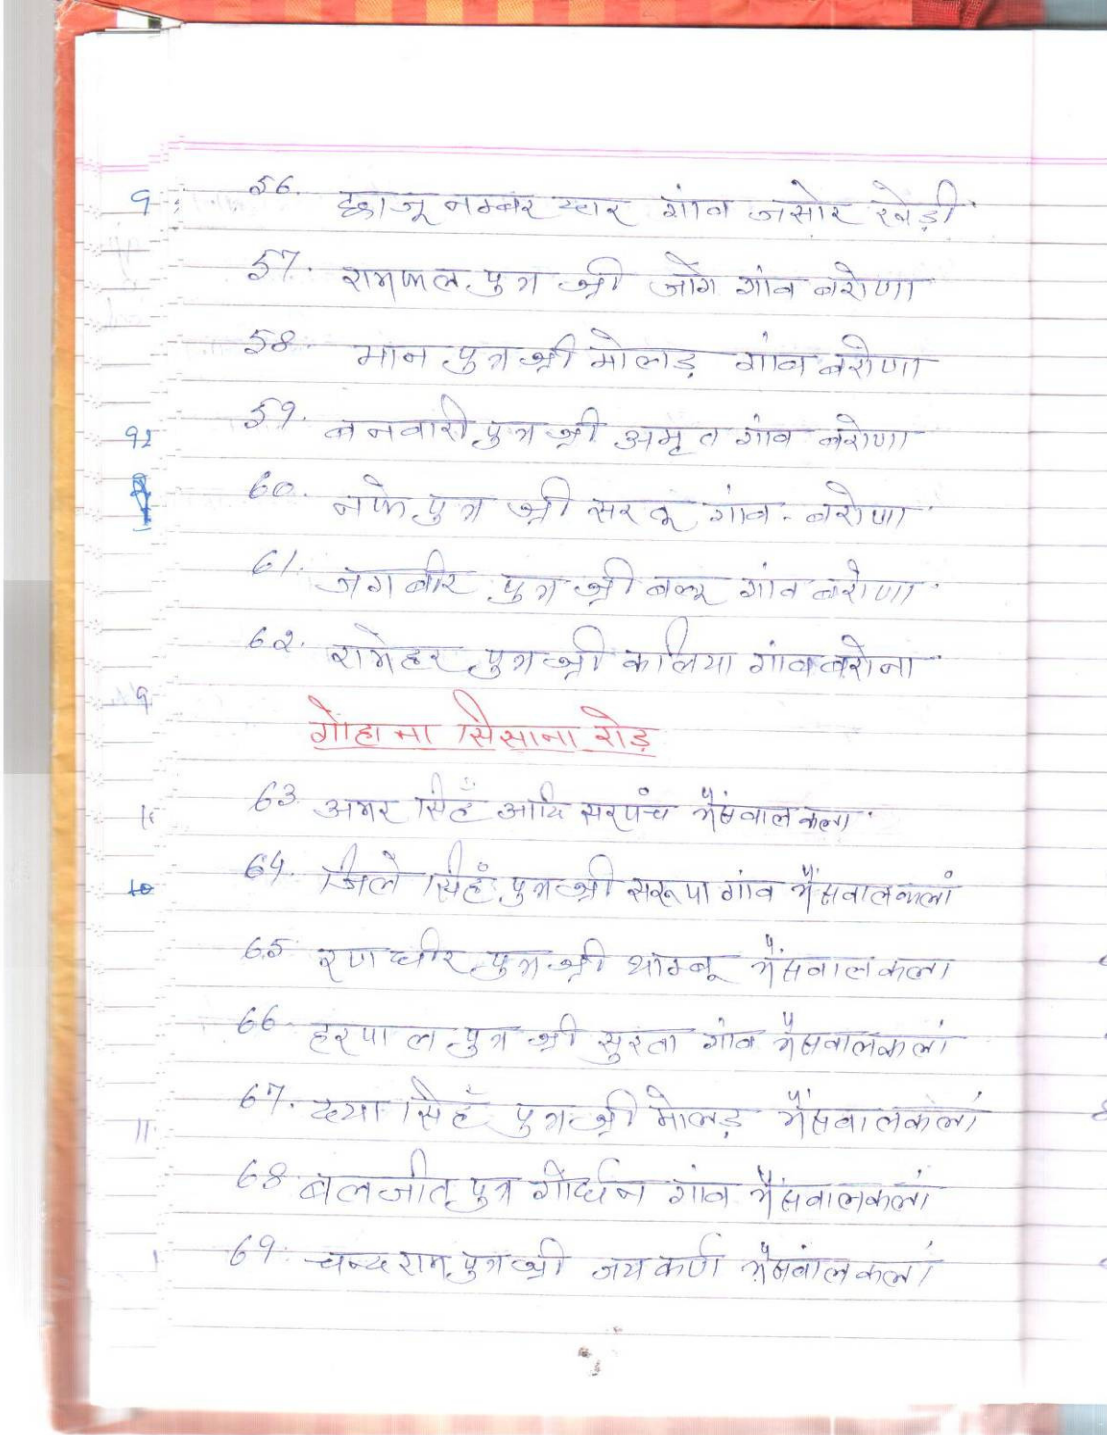 56. छाजू नम्बर दार गांव जसोर खेड़ी
57. रामफल पुत्र श्री जोगे गांव बरोणा
58. मान पुत्र श्री मोलड़ गांव बरोणा
59. बनवारी पुत्र श्री अमृत गांव बरोणा
60. नफे पुत्र श्री सरदू गांव बरोणा
61. जगबीर पुत्र श्री गांव बरोणा
62. रामेहर पुत्र श्री कालिया गांव बरोना
गोहाना सिसाना रोड़
63. अमर सिहँ आदि सरपंच भैंसवाल कला
64. जिले सिहँ पुत्र श्री सरूपा गांव भैंसवाल कलां
65 रणधीर पुत्र श्री थाम्बू भैंसवाल कला
66 हरपाल पुत्र श्री सुरता गांव भैंसवाल कलां
67. दया सिहँ पुत्र श्री मोलड़ भैंसवाल कलां
68 बलजीत पुत्र गोर्धन गांव भैंसवाल कलां
69. चन्द राम पुत्र श्री जयकर्ण भैंसवाल कलां